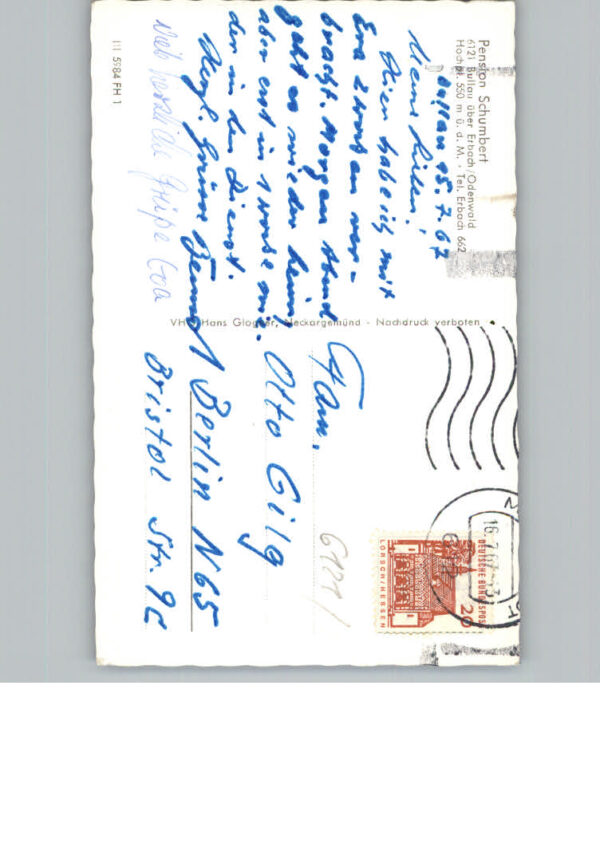 Pension Schumbert
6121 Bullau über Erbach/Odenwald
Hochpl. 550 m ü. d. M. · Tel. Erbach 662
Bullau 15.7.67
Meine Lieben!
Hier habe ich mit
Eva 2 Wochen ver-
bracht. Morgen Abend
geht es wieder heim,
aber erst in 1 Woche
der in den Dienst.
Herzl. Grüsse
Viele herzliche Grüße Eva
III 5984 FH 1
Hans Glogger, Neckargemünd - Nachdruck verboten
Fam.
Otto Gilg
Berlin N65
Bristol Str. 9c
6121/
DEUTSCHE BUNDESPOST
20
LORSCH/HESSEN
16.7.67